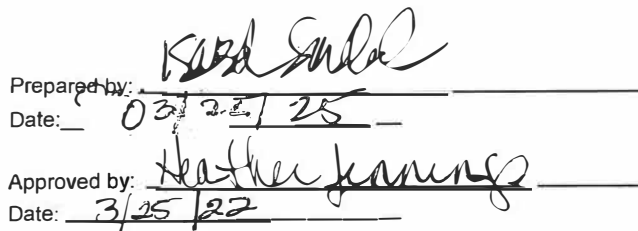 Prepared by:
Date: 03/22/25
Approved by: Heather Jennings
Date: 3/25/22